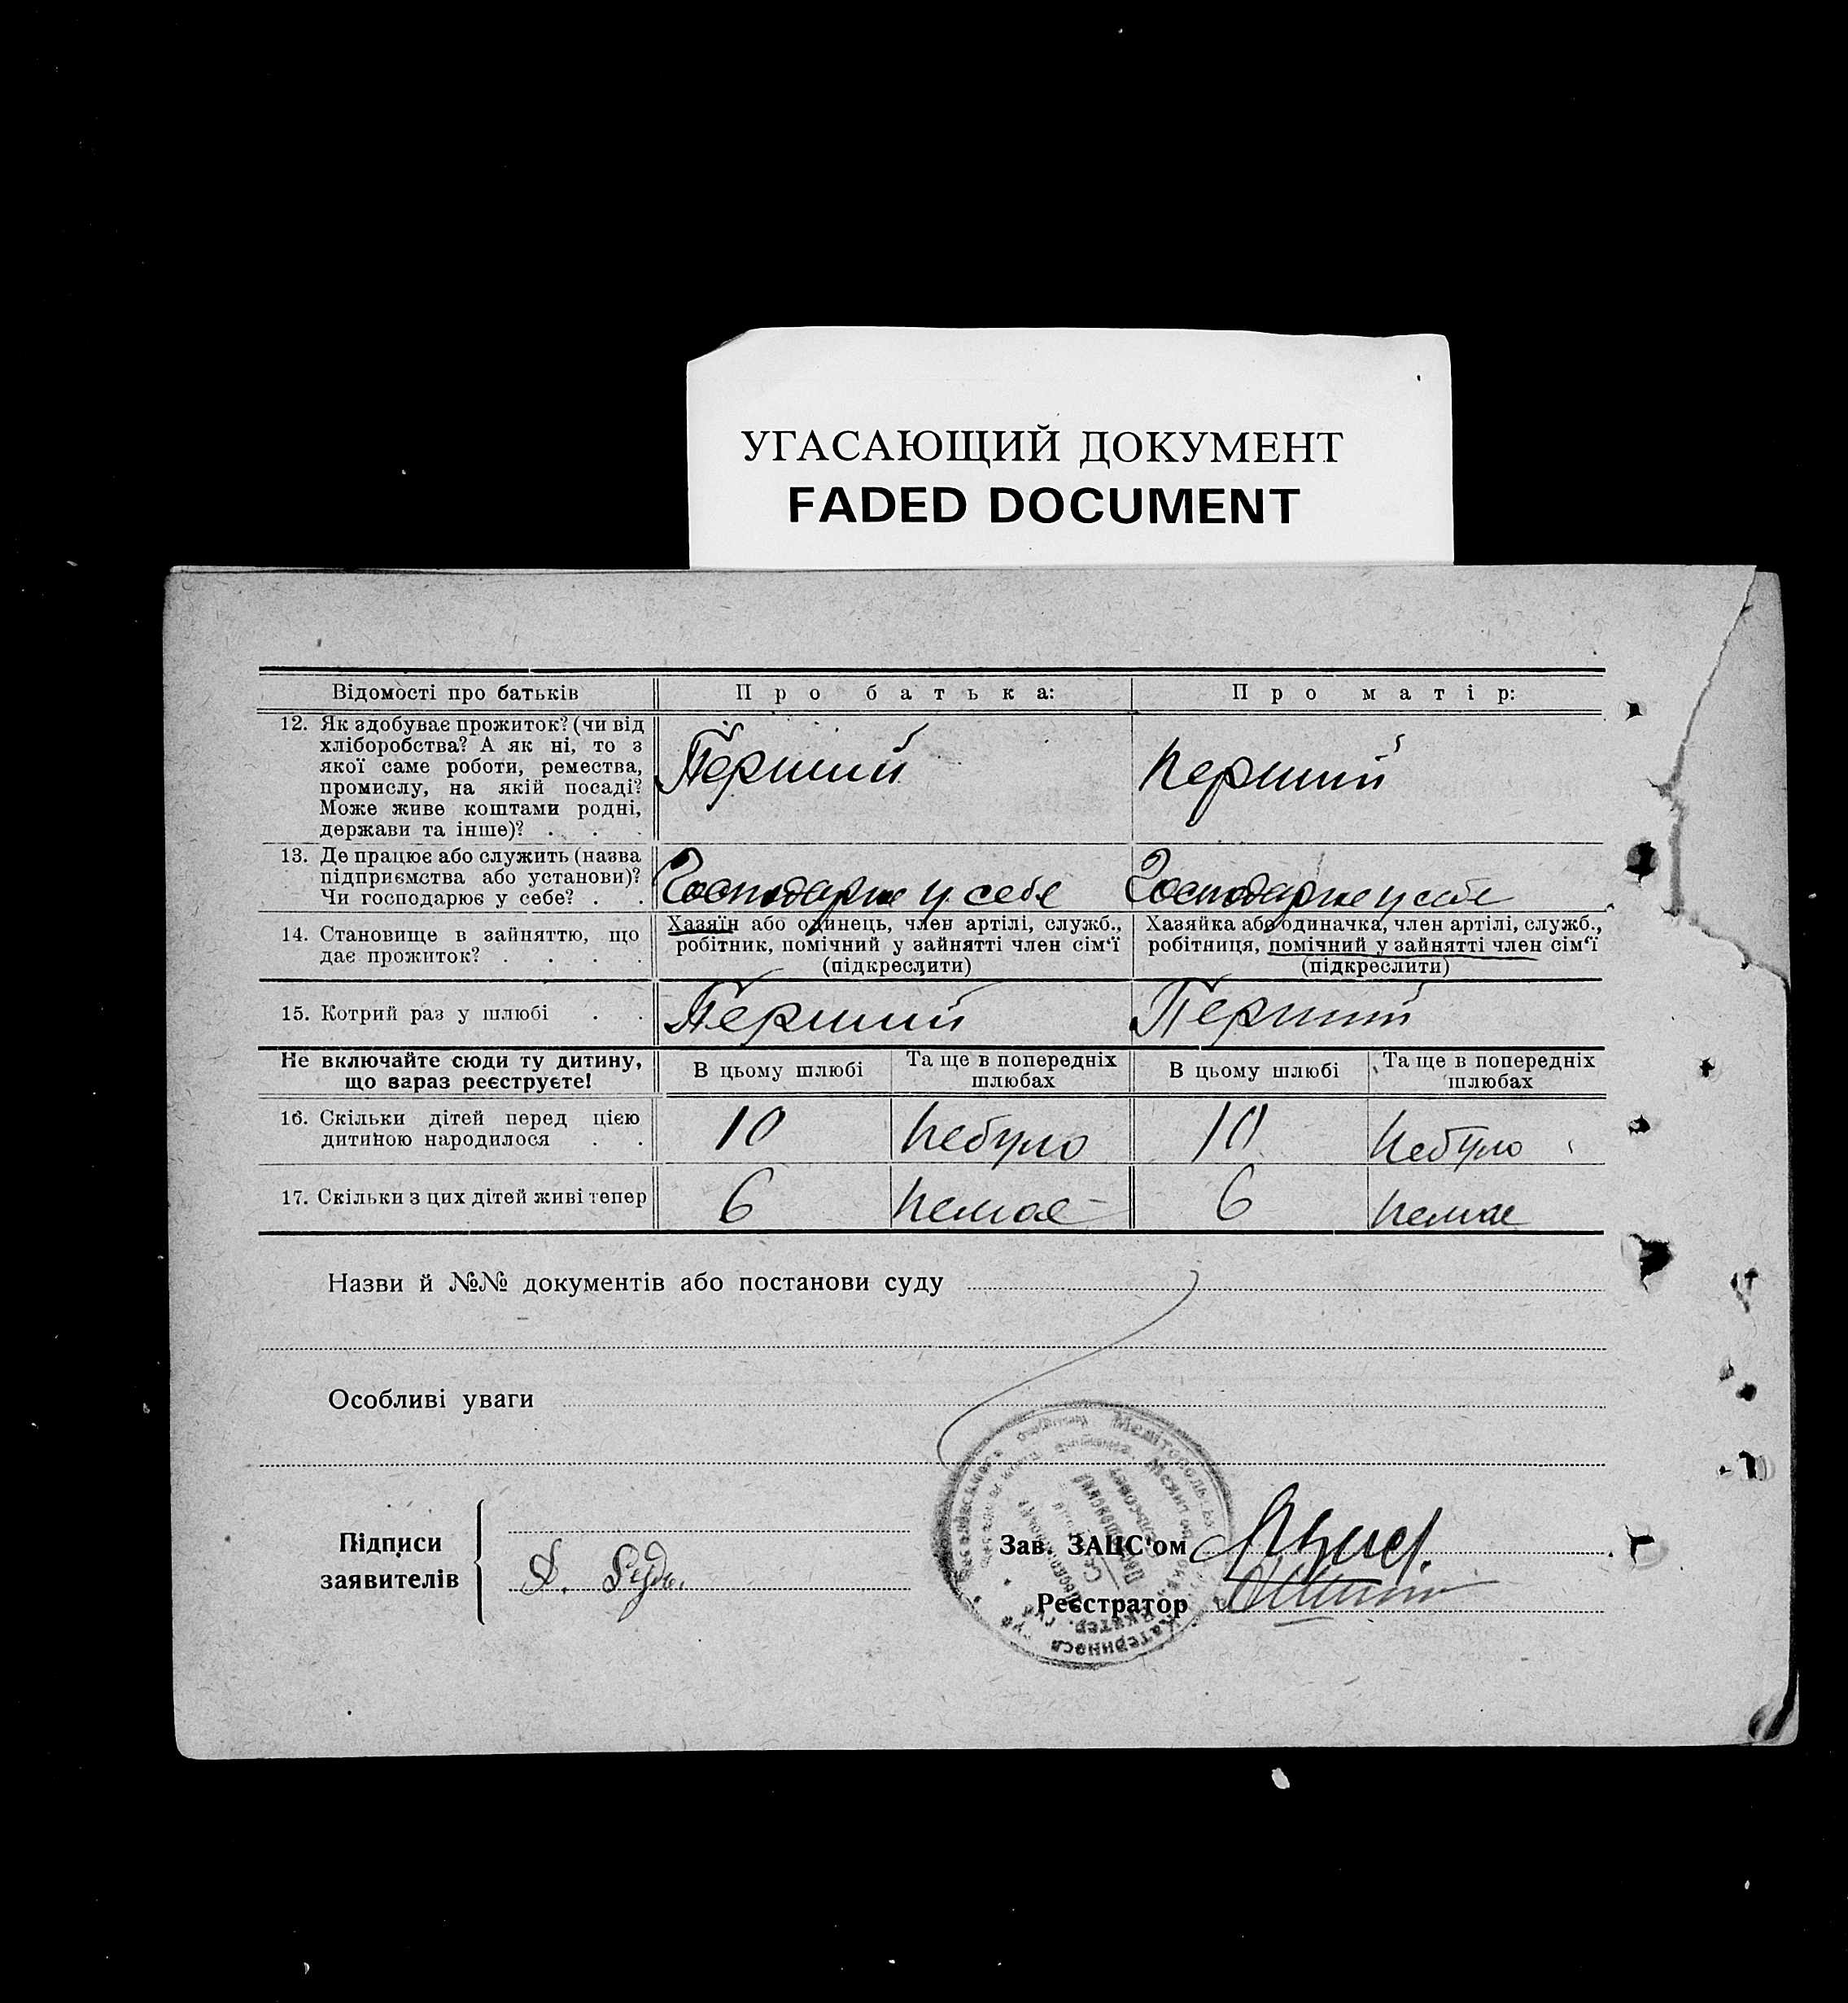 УГАСАЮЩИЙ ДОКУМЕНТ
FADED DOCUMENT
Відомості про батьків
Про батька:
Про матір:
12. Як здобуває прожиток? (чи від
хліборобства? А як ні, то з
якої саме роботи, ремества,
промислу, на якій посаді?
Може живе коштами родні,
держави та інше)? . . .
Перший
Перший
13. Де працює або служить (назва
підприємства або установи)?
Чи господарює у себе? . .
Господарює у себе
Господарює у себе
14. Становище в зайняттю, що
дає прожиток? . . . .
Хазяїн або одинець, член артілі, служб.,
робітник, помічний у зайнятті член сім'ї
(підкреслити)
Хазяйка або одиначка, член артілі, служб.,
робітниця, помічний у зайнятті член сім'ї
(підкреслити)
15. Котрий раз у шлюбі . .
Перший
Перший
Не включайте сюди ту дитину,
що зараз реєструєте!
В цьому шлюбі
Та ще в попередніх
шлюбах
В цьому шлюбі
Та ще в попередніх
шлюбах
16. Скільки дітей перед цією
дитиною народилося . .
10
Небуло
10
Небуло
17. Скільки з цих дітей живі тепер
6
Немає
6
Немає
Назви й №№ документів або постанови суду
Особливі уваги
Підписи
заявителів
Зав. ЗАЦС'ом
Реєстратор